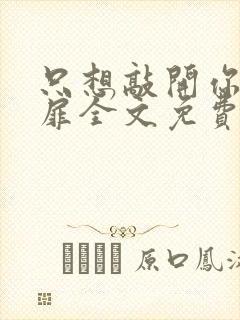 只想敲開你
扉全文免費
原口鳳汝